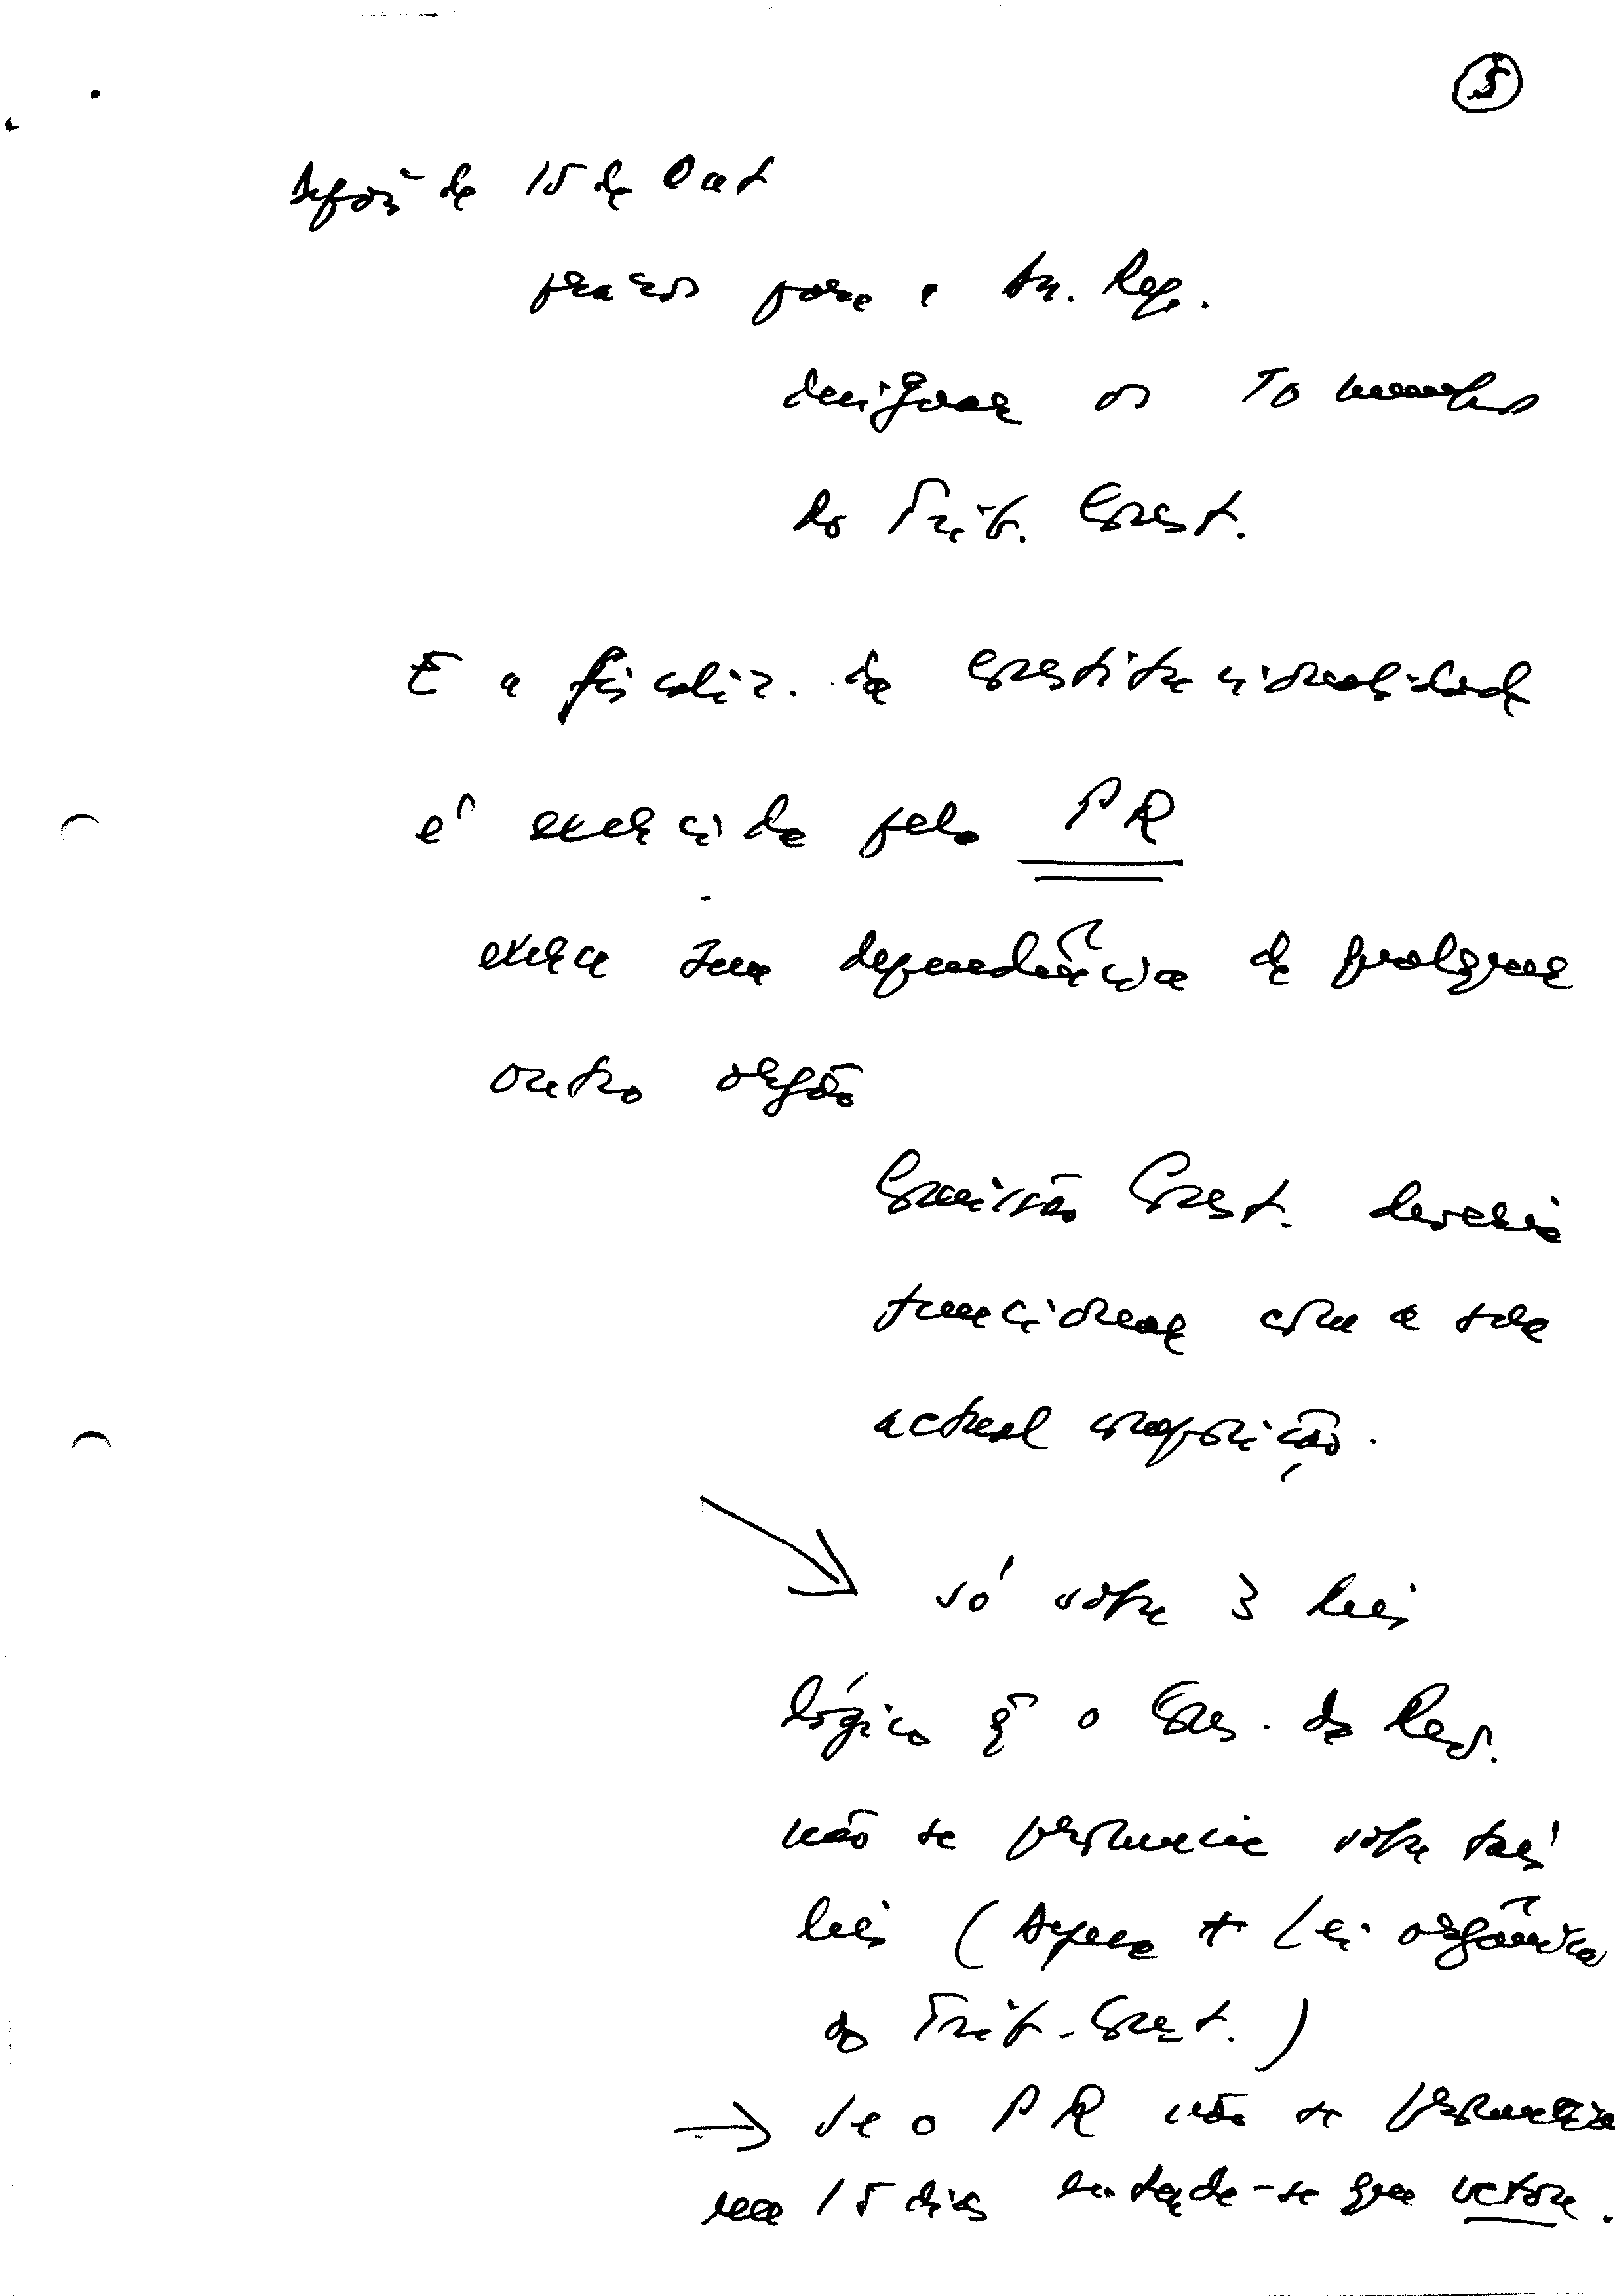 5
depois de 15 de Out
prazo para a As. Rep.
designar os 10 membros
do Trib. Const.
E a fiscaliz. da constitucionalidade
é exercida pelo PR
exerce sem dependência de qualquer
outro orgão
Comissão Const. deveria
funcionar com a sua
actual composição.
só sobre 3 leis
lógico q̃ o Cons. da Rev.
não se pronuncie sobre tais
leis (Defesa + Lei orgânica
do Trib. Const.)
Se o PR não se pronuncia
em 15 dias entende-se que vetou.